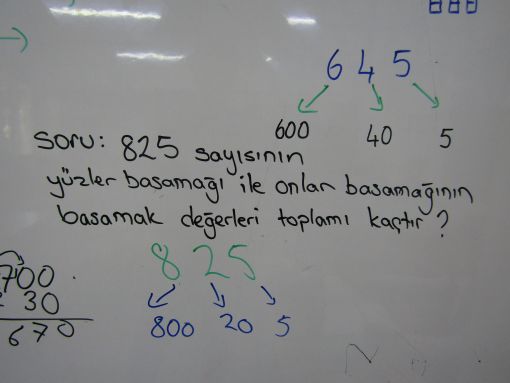 6 4 5
600 40 5
Soru: 825 sayısının
yüzler basamağı ile onlar basamağının
basamak değerleri toplamı kaçtır ?
8 2 5
800 20 5
700
30
670